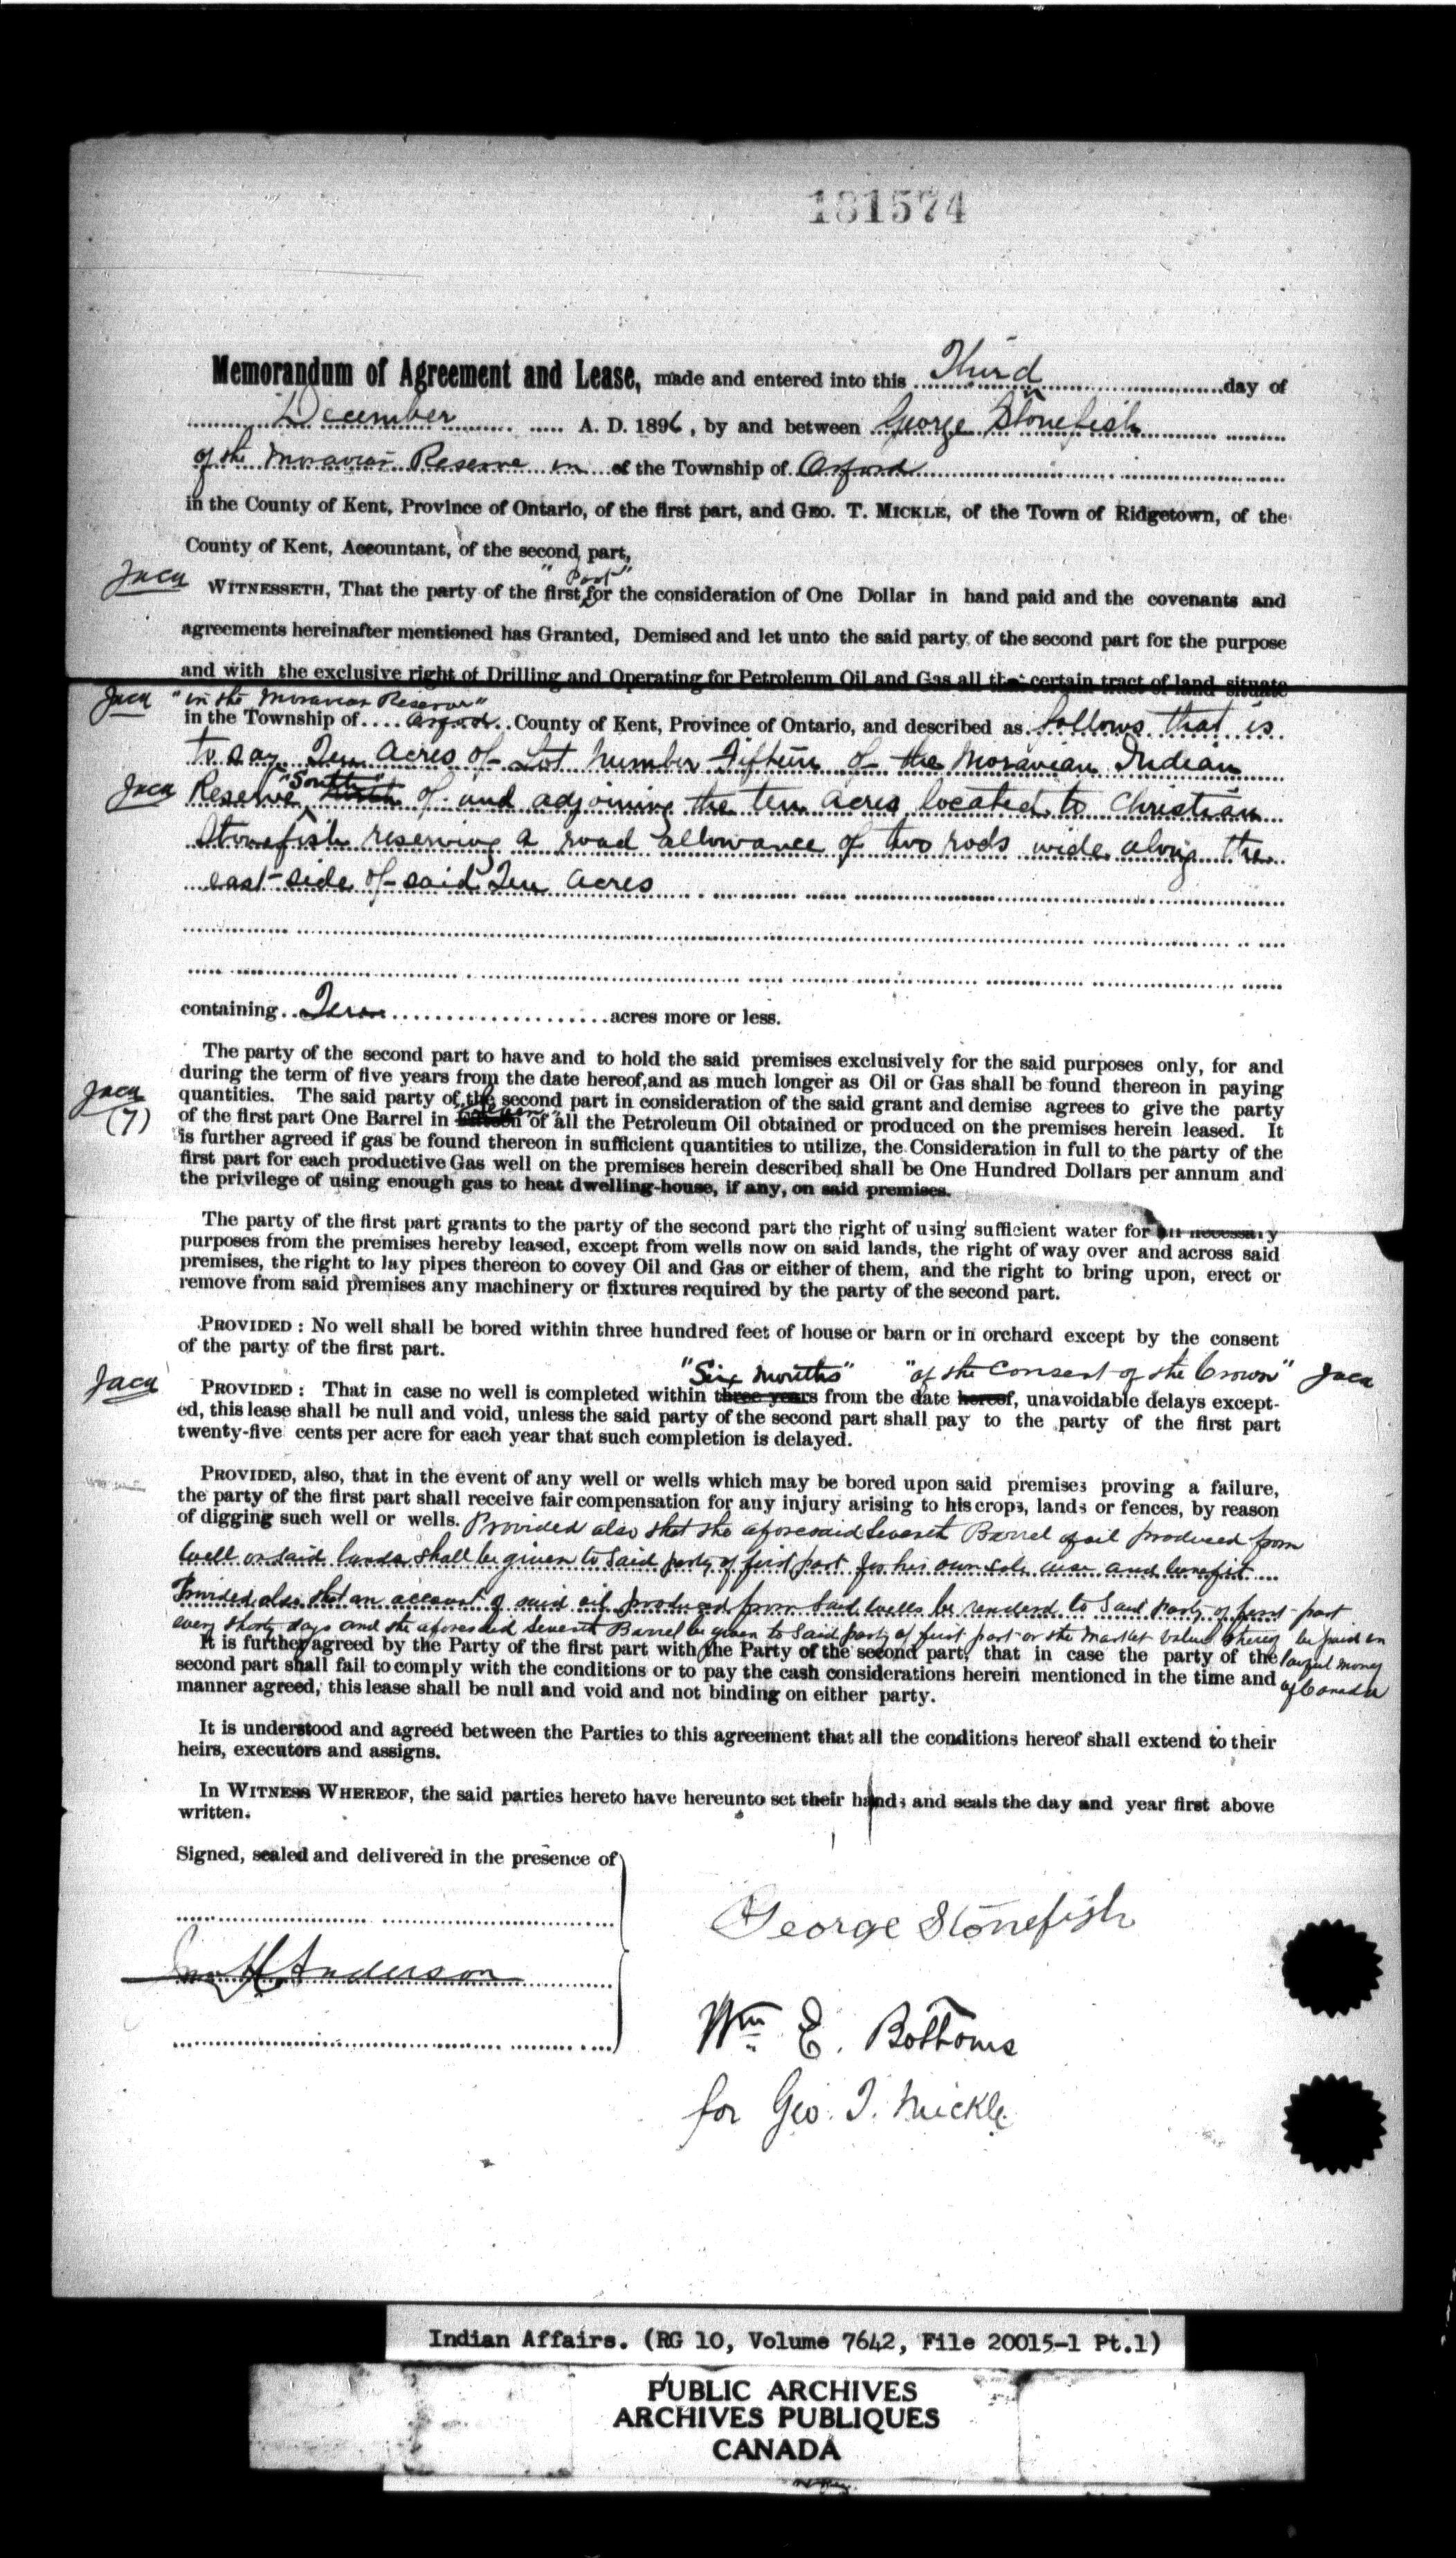 181574
Memorandum of Agreement and Lease, made and entered into this Third day of
December A. D. 1896, by and between George Stonefish
of the Moravian Reserve in of the Township of Orford
in the County of Kent, Province of Ontario, of the first part, and GEO. T. MICKLE, of the Town of Ridgetown, of the
County of Kent, Accountant, of the second part,
"Part"
WITNESSETH, That the party of the first for the consideration of One Dollar in hand paid and the covenants and
agreements hereinafter mentioned has Granted, Demised and let unto the said party of the second part for the purpose
and with the exclusive right of Drilling and Operating for Petroleum Oil and Gas all the certain tract of land situate
"in the Moravian Reserve"
in the Township of Orford County of Kent, Province of Ontario, and described as follows that is
to say Ten Acres of Lot Number Fifteen of the Moravian Indian
"South"
Reserve North of and adjoining the ten acres located to Christian
Stonefish reserving a road allowance of two rods wide along the
east side of said Ten acres
containing Ten acres more or less.
The party of the second part to have and to hold the said premises exclusively for the said purposes only, for and
during the term of five years from the date hereof, and as much longer as Oil or Gas shall be found thereon in paying
quantities. The said party of the second part in consideration of the said grant and demise agrees to give the party
(7)
"Seven"
of the first part One Barrel in of all the Petroleum Oil obtained or produced on the premises herein leased. It
is further agreed if gas be found thereon in sufficient quantities to utilize, the Consideration in full to the party of the
first part for each productive Gas well on the premises herein described shall be One Hundred Dollars per annum and
the privilege of using enough gas to heat dwelling-house, if any, on said premises.
The party of the first part grants to the party of the second part the right of using sufficient water for all necessary
purposes from the premises hereby leased, except from wells now on said lands, the right of way over and across said
premises, the right to lay pipes thereon to covey Oil and Gas or either of them, and the right to bring upon, erect or
remove from said premises any machinery or fixtures required by the party of the second part.
PROVIDED : No well shall be bored within three hundred feet of house or barn or in orchard except by the consent
of the party of the first part.
"Six Months" "of the Consent of the Crown"
PROVIDED : That in case no well is completed within three years from the date hereof, unavoidable delays except-
ed, this lease shall be null and void, unless the said party of the second part shall pay to the party of the first part
twenty-five cents per acre for each year that such completion is delayed.
PROVIDED, also, that in the event of any well or wells which may be bored upon said premises proving a failure,
the party of the first part shall receive fair compensation for any injury arising to his crops, lands or fences, by reason
of digging such well or wells. Provided also that the aforesaid Seventh Barrel of oil produced from
well on said lands shall be given to said party of first part for his own sole use and benefit
Provided also that an account of said oil produced from said wells be rendered to said party of first part
every thirty days and the aforesaid Seventh Barrel be given to said party of first part or the market value thereof be paid in
lawful money
of Canada
It is further agreed by the Party of the first part with the Party of the second part, that in case the party of the
second part shall fail to comply with the conditions or to pay the cash considerations herein mentioned in the time and
manner agreed, this lease shall be null and void and not binding on either party.
It is understood and agreed between the Parties to this agreement that all the conditions hereof shall extend to their
heirs, executors and assigns.
In WITNESS WHEREOF, the said parties hereto have hereunto set their hands and seals the day and year first above
written.
Signed, sealed and delivered in the presence of
George Stonefish
Jno H. Anderson
Wm E. Bottoms
for Geo. T. Mickle
Indian Affairs. (RG 10, Volume 7642, File 20015-1 Pt.1)
PUBLIC ARCHIVES
ARCHIVES PUBLIQUES
CANADA